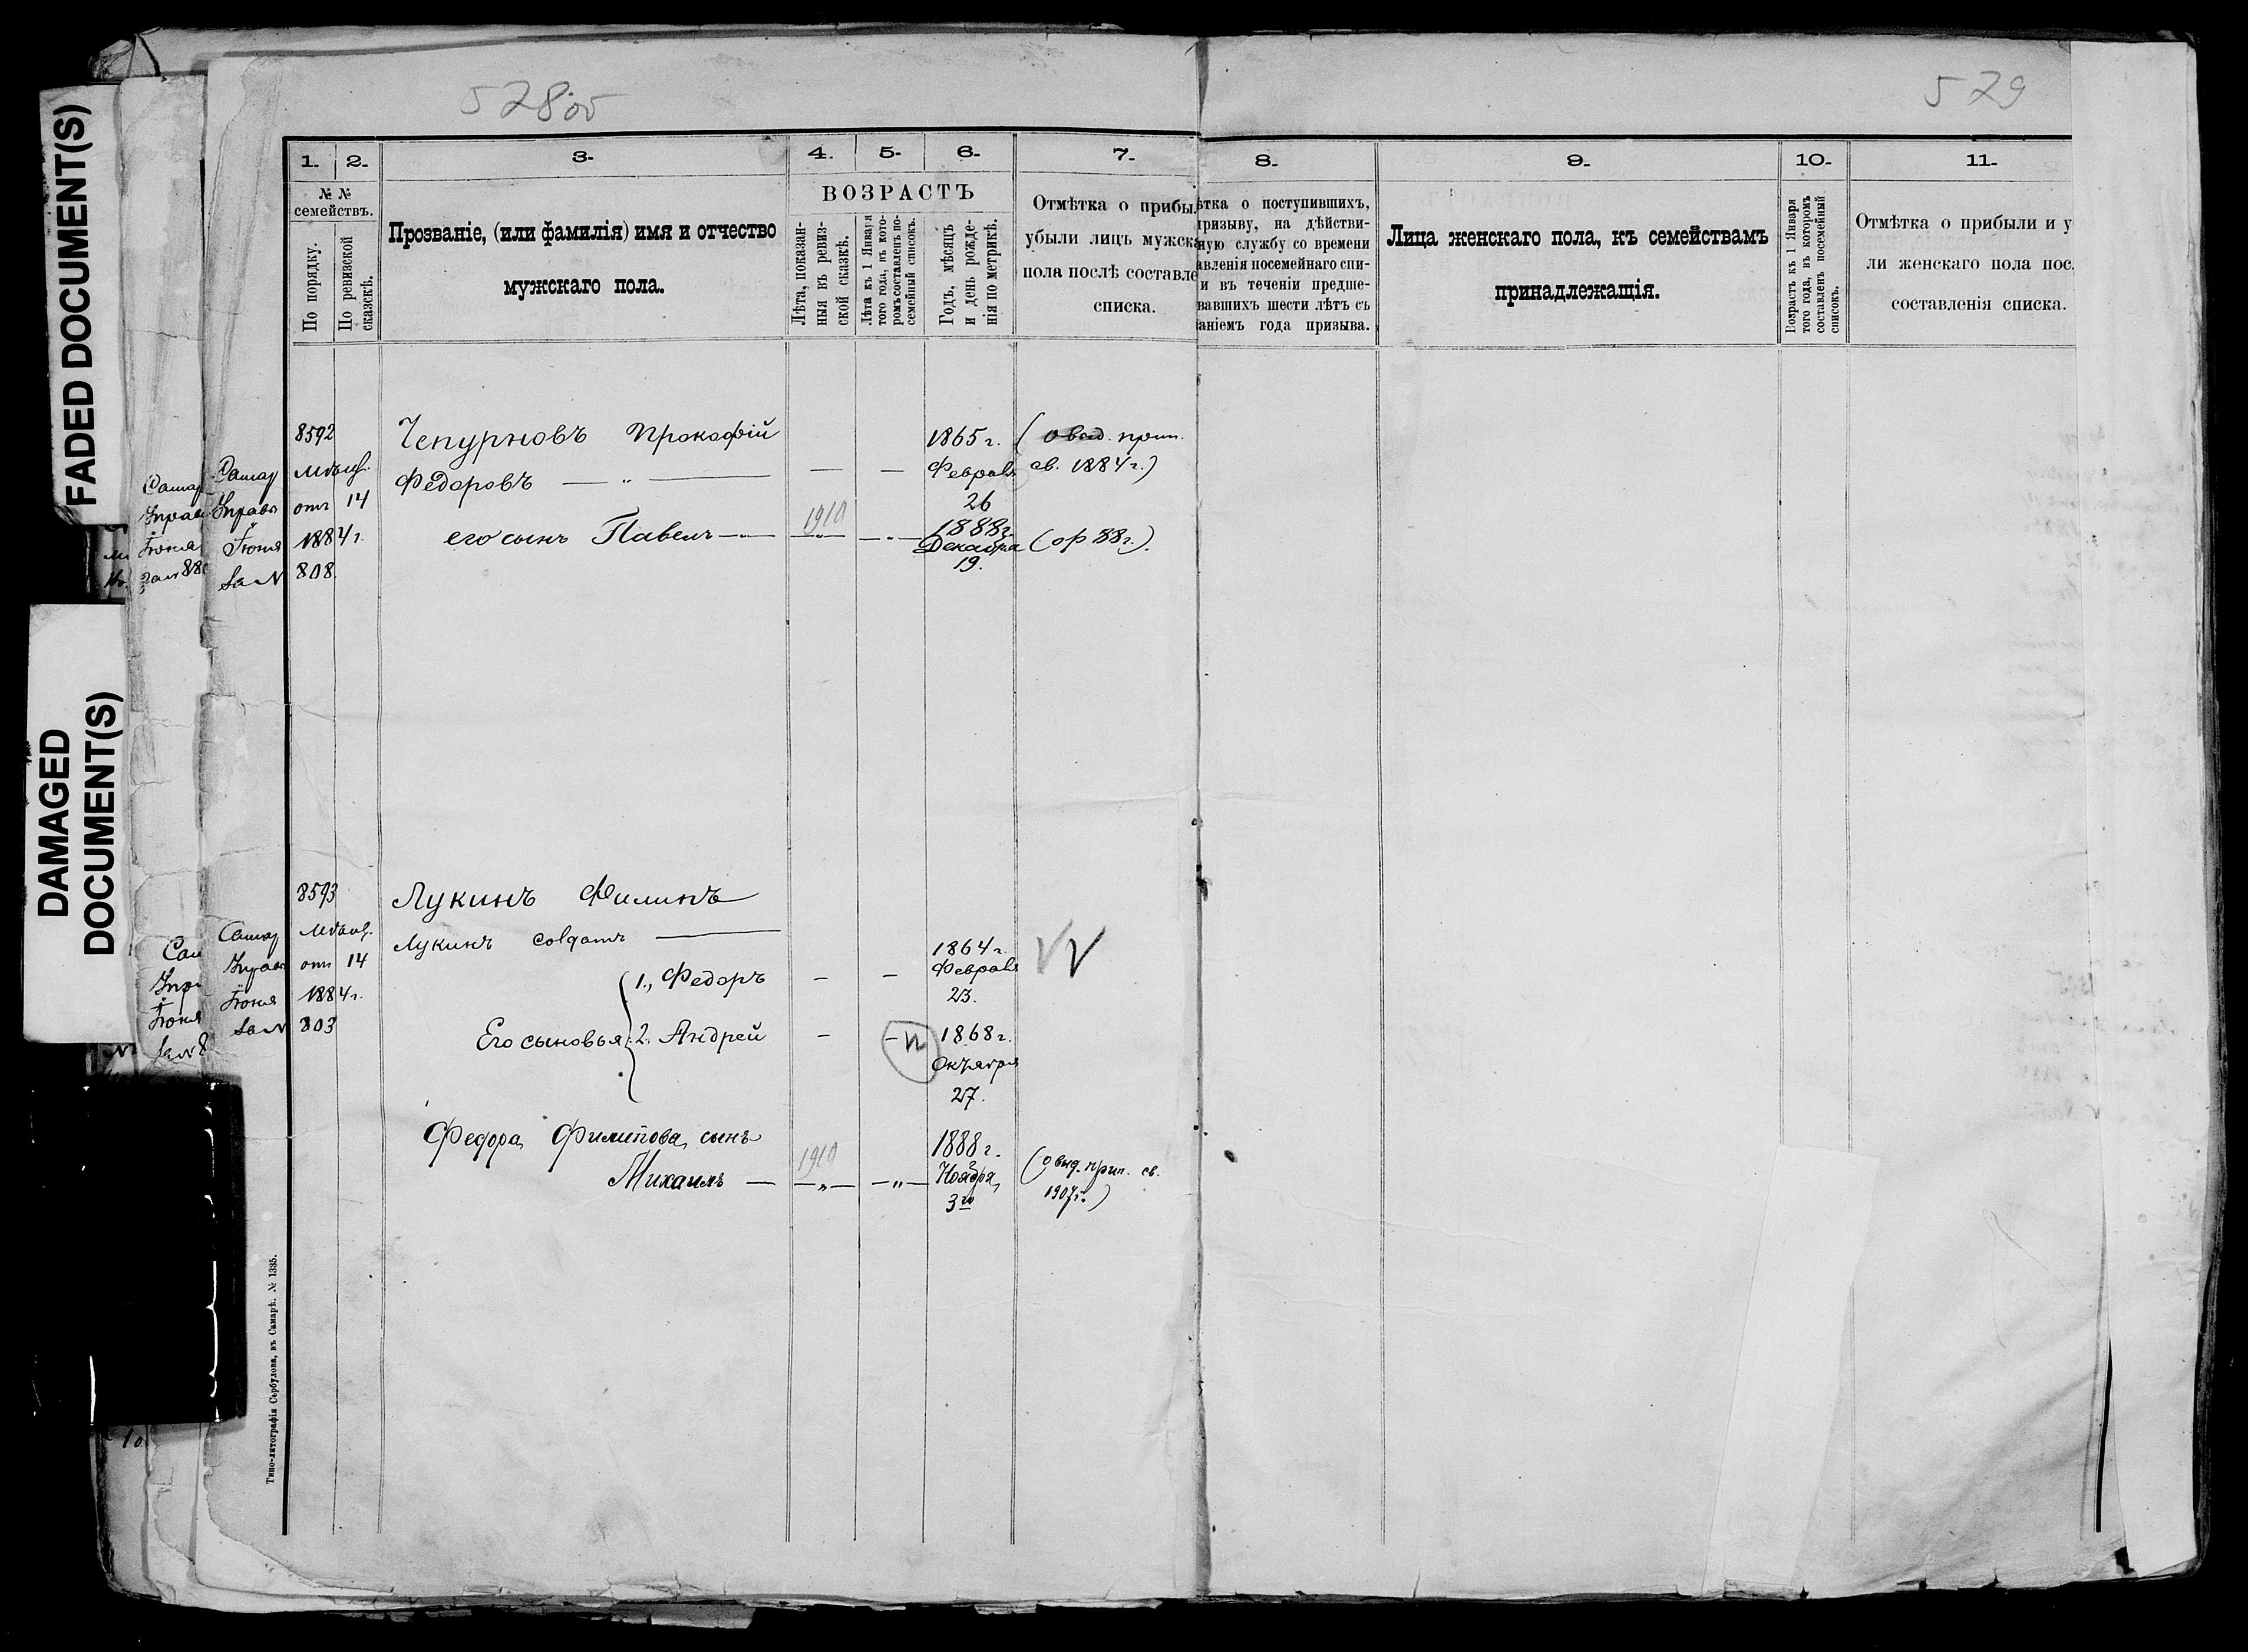 FADED DOCUMENT(S)
DAMAGED
DOCUMENT(S)
528об
579
1. 2. 3. 4. 5. 6. 7.
8. 9. 10. 11.
№ №
семействъ.
По порядку.
По ревизской
сказкѣ.
Прозваніе, (или фамилія) имя и отчество
мужскаго пола.
ВОЗРАСТЪ
Лѣта, показан-
ныя въ ревиз-
ской сказкѣ.
Лѣта къ 1 Января
того года, въ кото-
ромъ составленъ по-
семейный списокъ.
Годъ, мѣсяцъ
и день рожде-
нія по метрикѣ.
Отмѣтка о прибы
убыли лицъ мужск
пола послѣ составле
списка.
ѣтка о поступившихъ,
призыву, на дѣйстви-
ную службу со времени
авленія посемейнаго спи-
и въ теченіи предше-
вавшихъ шести лѣтъ съ
аніемъ года призыва.
Лица женскаго пола, къ семействамъ
принадлежащія.
Возрастъ къ 1 Января
того года, въ которомъ
составленъ посемейный
списокъ.
Отмѣтка о прибыли и у
ли женскаго пола пос
составленія списка.
8592 Чепурновъ Прокофій 1865 г. прип.
Самар Мѣщ. Федоровъ — „ — — — Февраля св. 1884 г.)
Управы отъ 14 26
Іюня 1884 г. его сынъ Павелъ — „ — 1910 — „ — — „ — 1888 г. Декабря (ор 88 г.).
За № 808 19.
8593 Лукинъ Филипъ
Самар Мѣщ. Лукинъ солдатъ — 1864 г.
Управы отъ 14 1., Федоръ — — Февраля
Іюня 1884 г. 23.
За № 803 Его сыновья: 2. Андрей — — 1868 г.
Октября
27.
Федора Филипова сынъ 1888 г.
1910
Михаилъ — — „ — — „ — Ноября (о выд. прип. св.
3го 1907 г.)
Типо-литографія Сербулова, въ Самарѣ. № 1335.